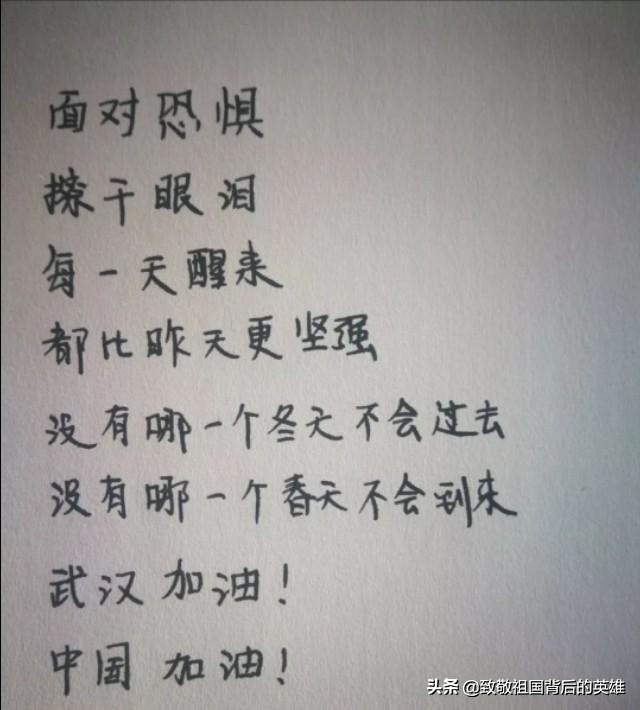 面对恐惧
擦干眼泪
每一天醒来
都比昨天更坚强
没有哪一个冬天不会过去
没有哪一个春天不会到来
武汉加油！
中国加油！
头条 @致敬祖国背后的英雄